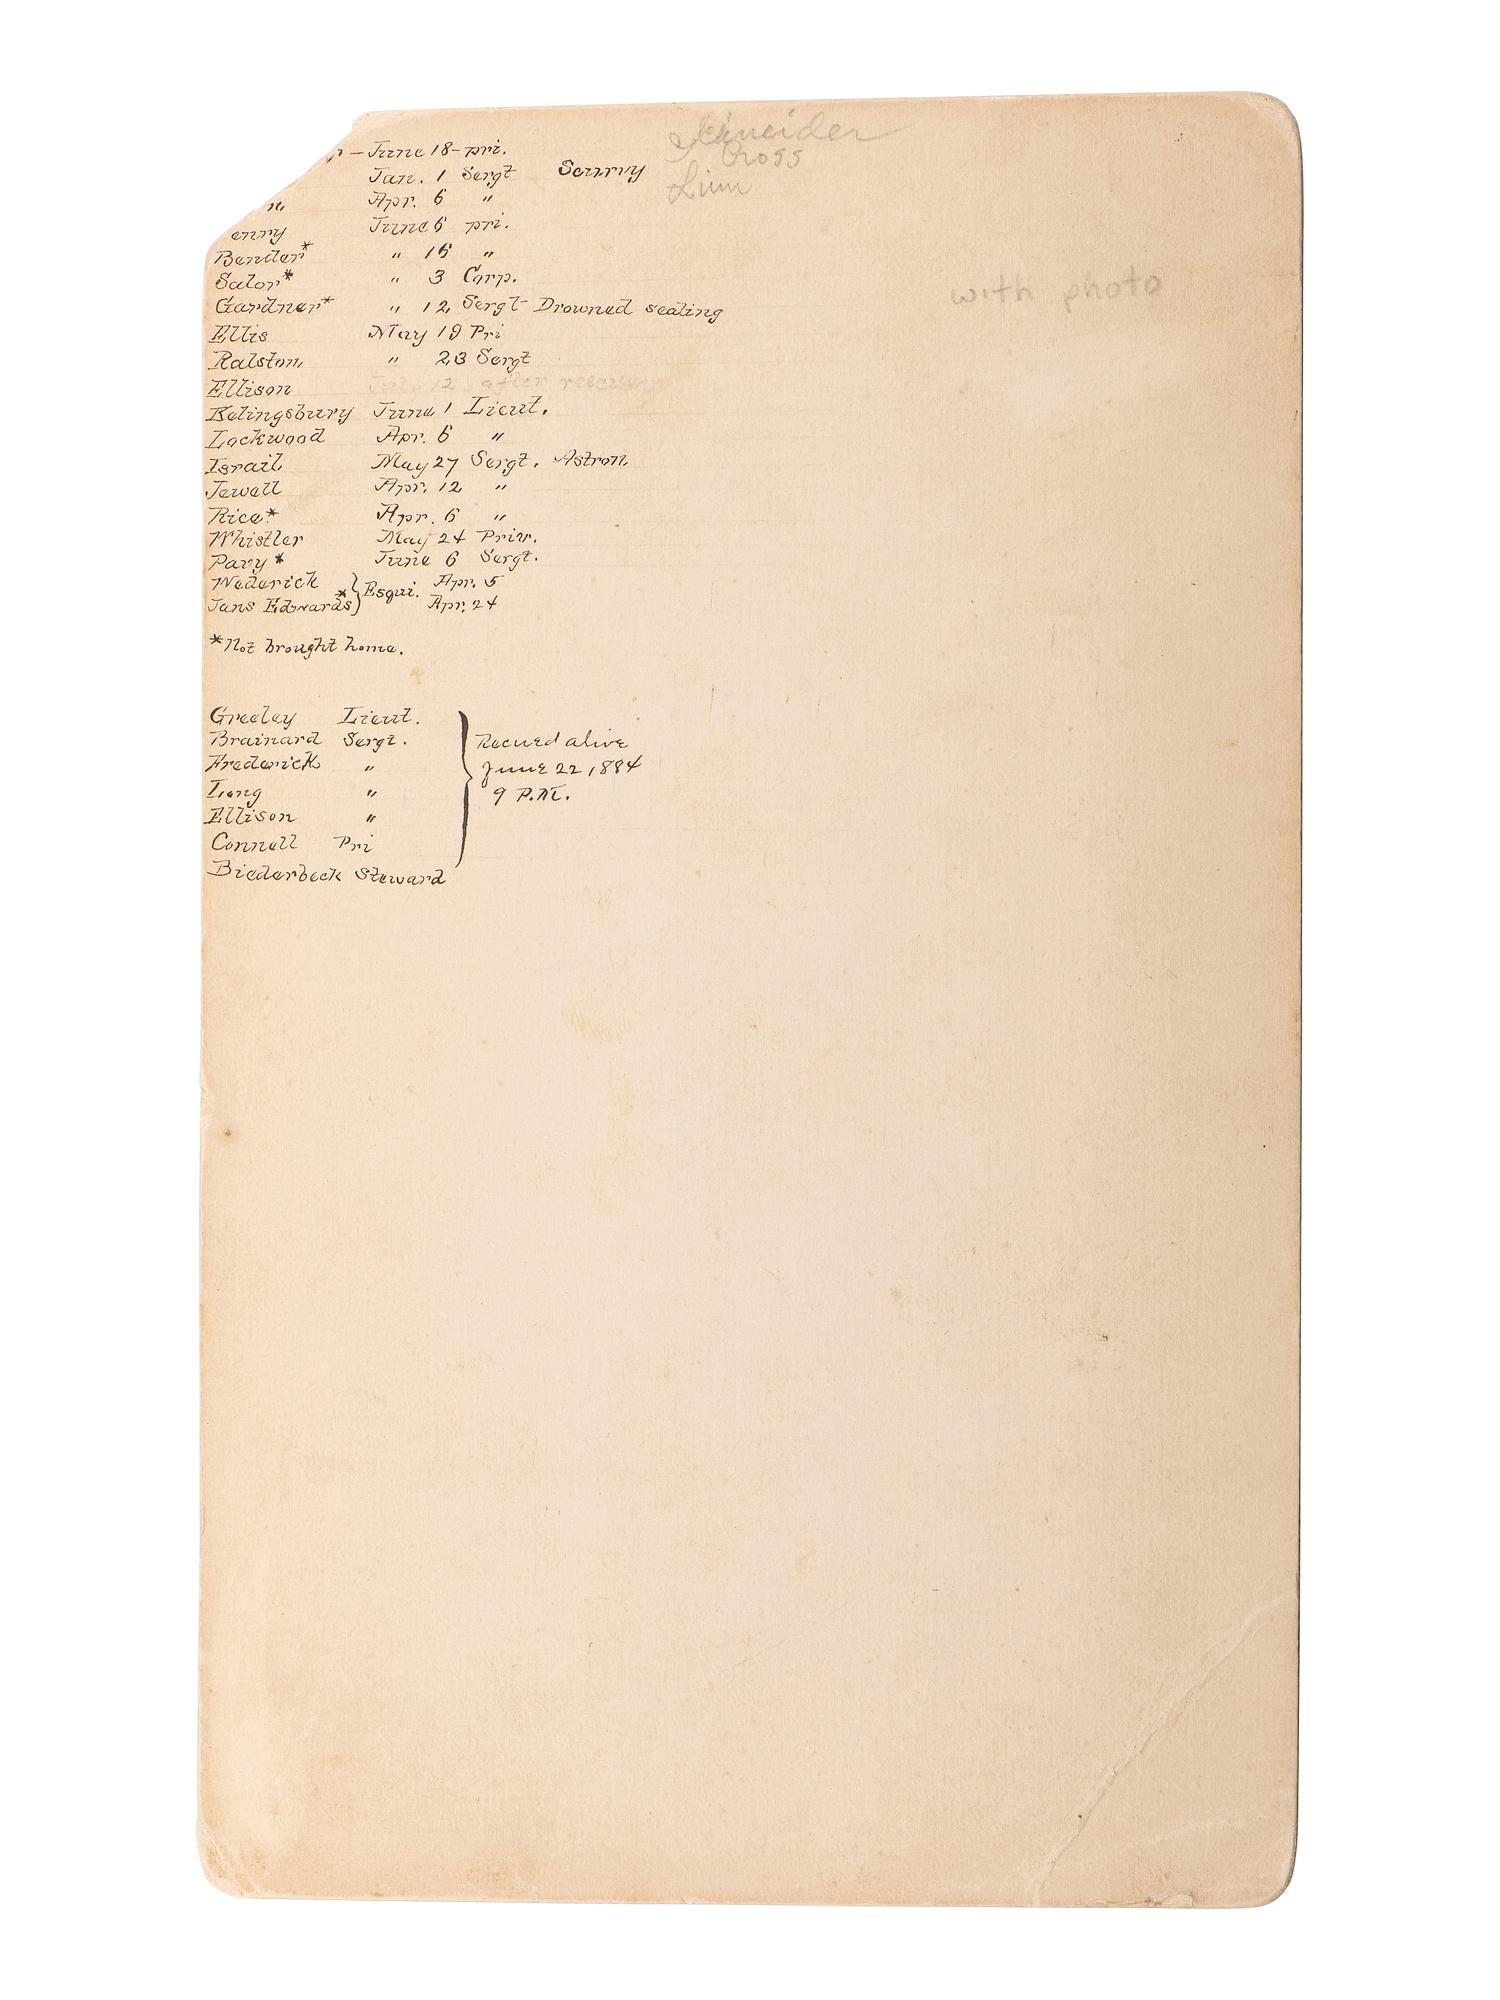 r – June 18 – pri.
Jan. 1 Sergt Scurvy
n, Apr. 6 "
enry June 6 pri.
Bender* " 16 "
Salor* " 3 Corp.
Gardner* " 12 Sergt Drowned sealing
Ellis May 19 Pri
Ralston, " 23 Sergt
Ellison July 12 after rescue
Kelingsbury June 1 Lieut.
Lockwood Apr. 6 "
Israil May 27 Sergt. Astron
Jewell Apr. 12 "
Rice* Apr. 6 "
Whistler May 24 Priv.
Pavy* June 6 Sergt.
Wederick } Esqui. Apr. 5
Jans Edwards* } Apr. 24
*Not brought home.
Greeley Lieut.
Brainard Sergt. Recued alive
Frederick " June 22, 1884
Long " 9 P.M.
Ellison "
Connell Pri
Biederbeck Steward
Schneider
Cross
Linn
with photo